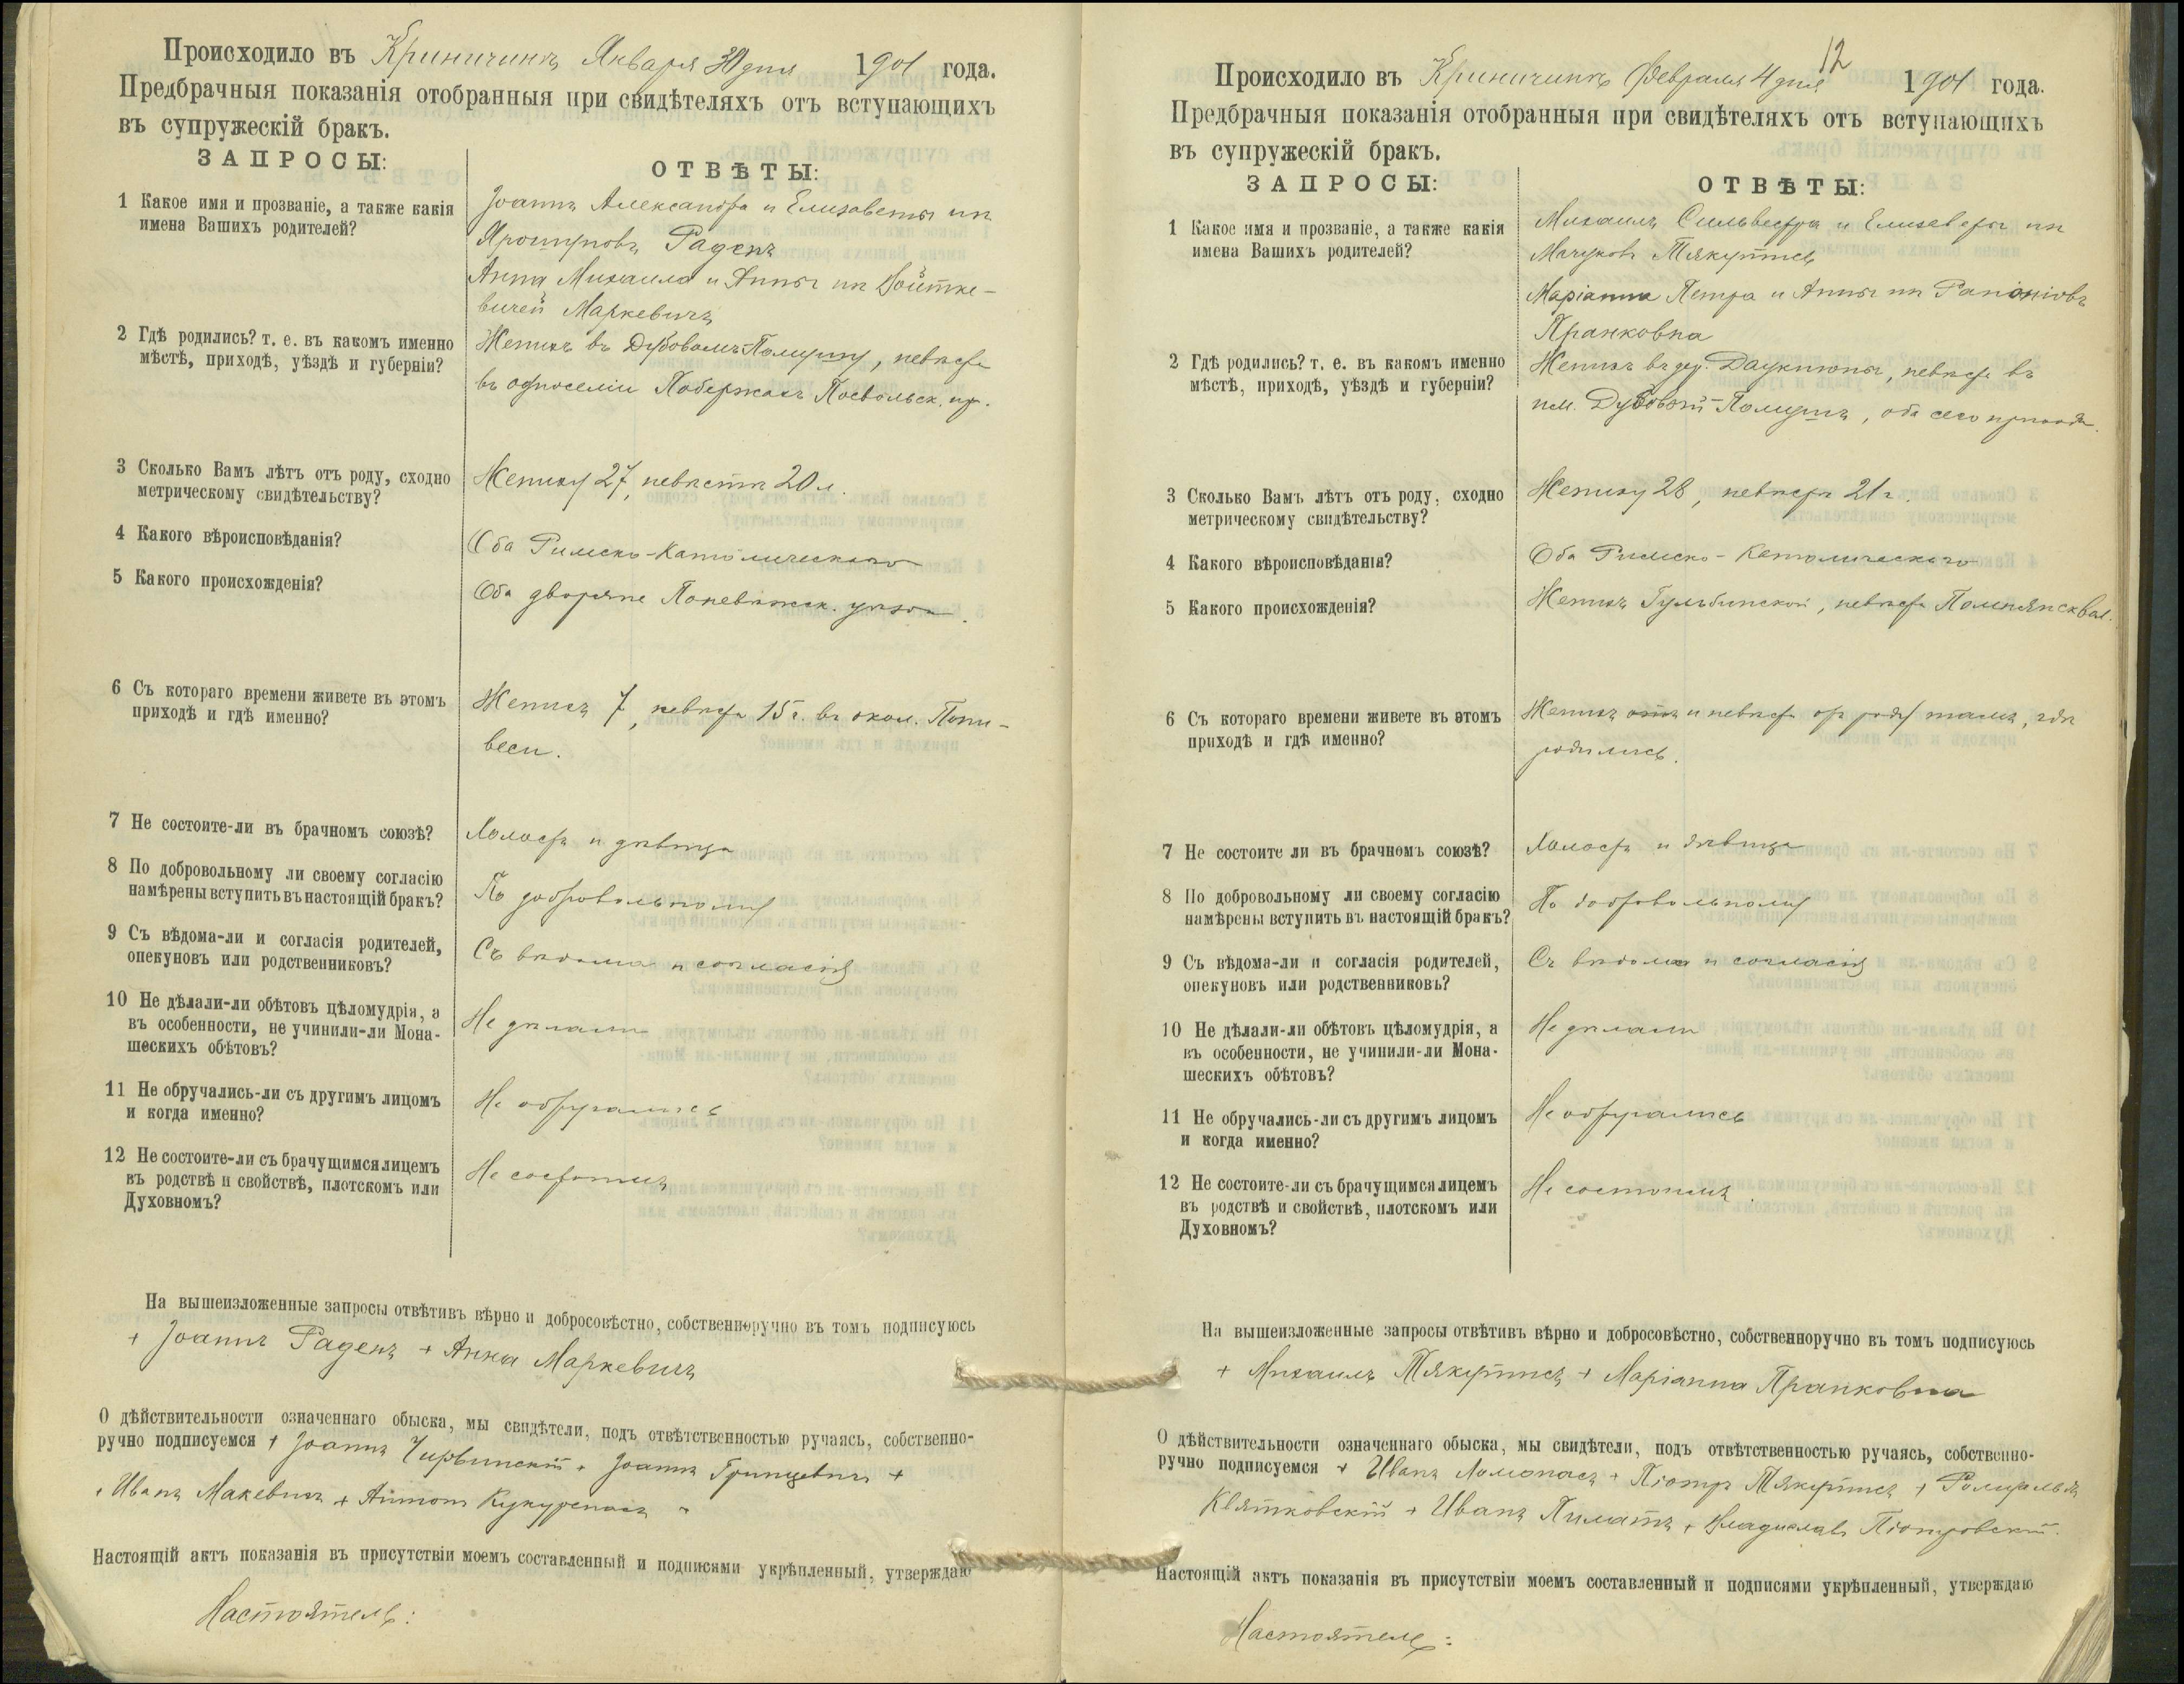 Происходило въ Криничинѣ Января 30 дня 1901 года.
Предбрачныя показанія отобранныя при свидѣтеляхъ отъ вступающихъ
въ супружескій бракъ.
ЗАПРОСЫ: ОТВѢТЫ:
1 Какое имя и прозваніе, а также какія
имена Вашихъ родителей?
Іоаннъ Александра и Елизаветы изъ
Раденъ
Анна Михаила и Анны изъ Войтке-
вичей Маркевичъ
2 Гдѣ родились? т. е. въ какомъ именно
мѣстѣ, приходѣ, уѣздѣ и губерніи?
Женихъ въ Дубовомъ-Полишу, невѣста
въ односеліи Побержахъ Посвольск. пр.
3 Сколько Вамъ лѣтъ отъ роду, сходно
метрическому свидѣтельству?
Жениху 27, невѣстѣ 20 л.
4 Какого вѣроисповѣданія?
Оба Римско-Католическаго
5 Какого происхожденія?
Оба дворяне Поневѣжск. уѣзда.
6 Съ котораго времени живете въ этомъ
приходѣ и гдѣ именно?
Женихъ 7, невѣста 15 г. въ окол.
веси.
7 Не состоите-ли въ брачномъ союзѣ?
Холостъ и дѣвица
8 По добровольному ли своему согласію
намѣрены вступить въ настоящій бракъ?
По добровольному
9 Съ вѣдома-ли и согласія родителей,
опекуновъ или родственниковъ?
Съ вѣдома и согласія
10 Не дѣлали-ли обѣтовъ цѣломудрія, а
въ особенности, не учинили-ли Мона-
шескихъ обѣтовъ?
Не дѣлали
11 Не обручались-ли съ другимъ лицомъ
и когда именно?
Не обручались
12 Не состоите-ли съ брачущимся лицемъ
въ родствѣ и свойствѣ, плотскомъ или
Духовномъ?
Не состоимъ
На вышеизложенные запросы отвѣтивъ вѣрно и добросовѣстно, собственноручно въ томъ подписуюсь
+ Іоаннъ Раденъ + Анна Маркевичъ
О дѣйствительности означеннаго обыска, мы свидѣтели, подъ отвѣтственностью ручаясь, собственно-
ручно подписуемся + Іоаннъ Чирвинскій + Іоаннъ Гринцевичъ +
+ Иванъ Макевичъ + Антонъ
Настоящій актъ показанія въ присутствіи моемъ составленный и подписями укрѣпленный, утверждаю
Настоятель:
12
Происходило въ Криничинѣ Февраля 4 дня 1901 года.
Предбрачныя показанія отобранныя при свидѣтеляхъ отъ вступающихъ
въ супружескій бракъ.
ЗАПРОСЫ: ОТВѢТЫ:
1 Какое имя и прозваніе, а также какія
имена Вашихъ родителей?
Михаилъ Сильвестра и Елизаветы изъ
Мачуковъ Тякутисъ
Маріанна Петра и Анны изъ
Пранковна
2 Гдѣ родились? т. е. въ какомъ именно
мѣстѣ, приходѣ, уѣздѣ и губерніи?
Женихъ въ дер. Даукнюны, невѣста въ
им. Дубовый-Полишъ, оба сего прихода.
3 Сколько Вамъ лѣтъ отъ роду, сходно
метрическому свидѣтельству?
Жениху 28, невѣстѣ 21 г.
4 Какого вѣроисповѣданія?
Оба Римско-Католическаго
5 Какого происхожденія?
Женихъ Гульбинской, невѣста Помпянск. вол.
6 Съ котораго времени живете въ этомъ
приходѣ и гдѣ именно?
Женихъ и невѣста отъ роду тамъ, гдѣ
родились.
7 Не состоите ли въ брачномъ союзѣ?
Холостъ и дѣвица
8 По добровольному ли своему согласію
намѣрены вступить въ настоящій бракъ?
По добровольному
9 Съ вѣдома-ли и согласія родителей,
опекуновъ или родственниковъ?
Съ вѣдома и согласія
10 Не дѣлали-ли обѣтовъ цѣломудрія, а
въ особенности, не учинили-ли Мона-
шескихъ обѣтовъ?
Не дѣлали
11 Не обручались-ли съ другимъ лицомъ
и когда именно?
Не обручались
12 Не состоите-ли съ брачущимся лицемъ
въ родствѣ и свойствѣ, плотскомъ или
Духовномъ?
Не состоимъ.
На вышеизложенные запросы отвѣтивъ вѣрно и добросовѣстно, собственноручно въ томъ подписуюсь
+ Михаилъ Тякутисъ + Маріанна Пранковна
О дѣйствительности означеннаго обыска, мы свидѣтели, подъ отвѣтственностью ручаясь, собственно-
ручно подписуемся + Иванъ Ломонасъ + Піотръ Тякутисъ + Ромуальдъ
Квятковскій + Иванъ Пилатъ + Владиславъ Піотровскій.
Настоящій актъ показанія въ присутствіи моемъ составленный и подписями укрѣпленный, утверждаю
Настоятель: